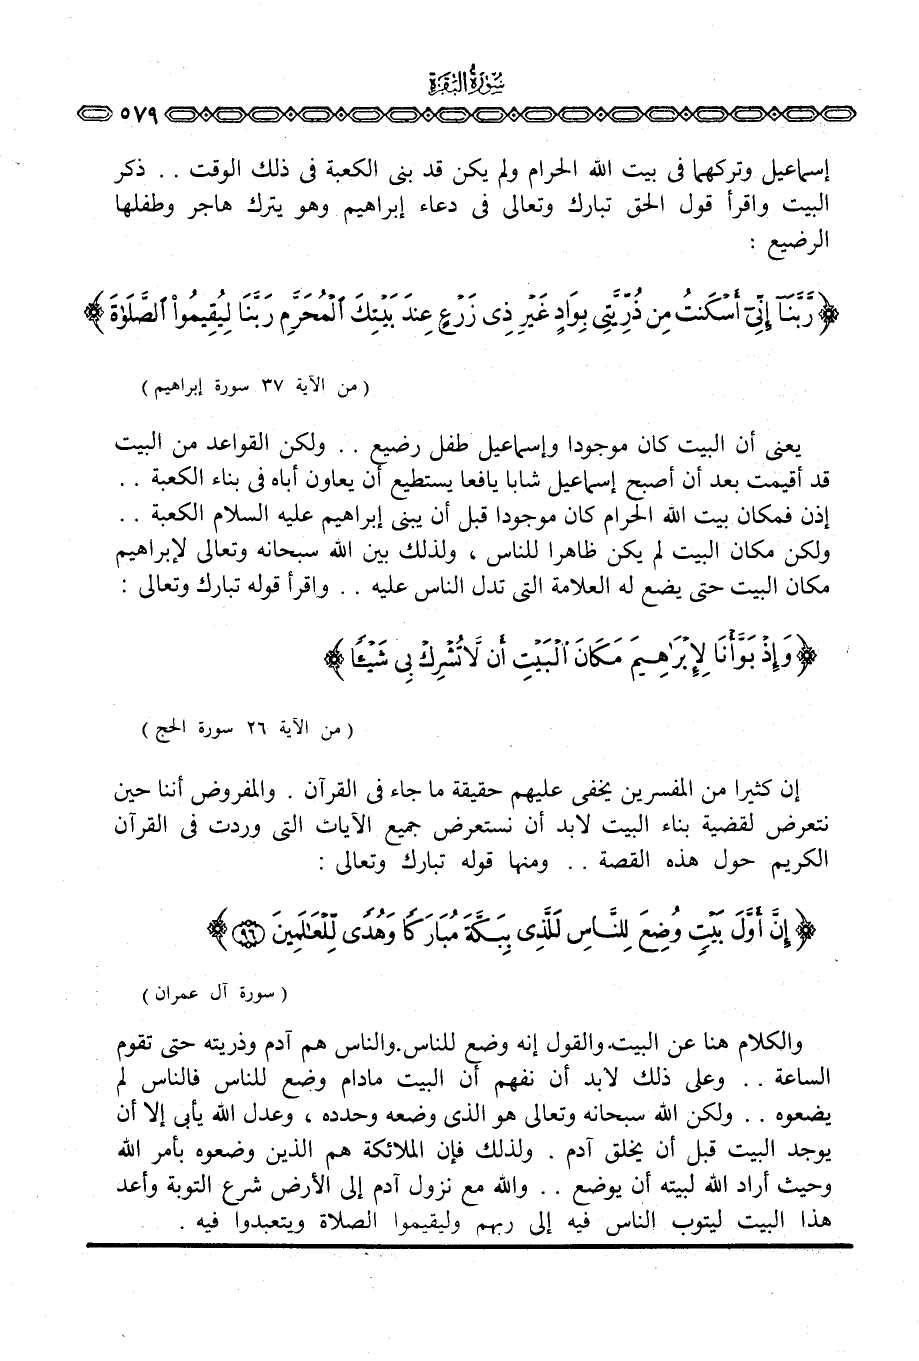 سورة البقرة
٥٧٩
إسماعيل وتركهما فى بيت الله الحرام ولم يكن قد بنى الكعبة فى ذلك الوقت . . ذكر
البيت واقرأ قول الحق تبارك وتعالى فى دعاء إبراهيم وهو يترك هاجر وطفلها
الرضيع :
﴿ رَّبَّنَآ إِنِّىٓ أَسْكَنتُ مِن ذُرِّيَّتِى بِوَادٍ غَيْرِ ذِى زَرْعٍ عِندَ بَيْتِكَ ٱلْمُحَرَّمِ رَبَّنَا لِيُقِيمُوا۟ ٱلصَّلَوٰةَ ﴾
( من الآية ٣٧ سورة إبراهيم )
يعنى أن البيت كان موجودا وإسماعيل طفل رضيع . . ولكن القواعد من البيت
قد أقيمت بعد أن أصبح إسماعيل شابا يافعا يستطيع أن يعاون أباه فى بناء الكعبة . .
إذن فمكان بيت الله الحرام كان موجودا قبل أن يبنى إبراهيم عليه السلام الكعبة . .
ولكن مكان البيت لم يكن ظاهرا للناس ، ولذلك بين الله سبحانه وتعالى لإبراهيم
مكان البيت حتى يضع له العلامة التى تدل الناس عليه . . واقرأ قوله تبارك وتعالى :
﴿ وَإِذْ بَوَّأْنَا لِإِبْرَٰهِيمَ مَكَانَ ٱلْبَيْتِ أَن لَّا تُشْرِكْ بِى شَيْـًٔا ﴾
( من الآية ٢٦ سورة الحج )
إن كثيرا من المفسرين يخفى عليهم حقيقة ما جاء فى القرآن . والمفروض أننا حين
نتعرض لقضية بناء البيت لابد أن نستعرض جميع الآيات التى وردت فى القرآن
الكريم حول هذه القصة . . ومنها قوله تبارك وتعالى :
﴿ إِنَّ أَوَّلَ بَيْتٍ وُضِعَ لِلنَّاسِ لَلَّذِى بِبَكَّةَ مُبَارَكًا وَهُدًى لِّلْعَٰلَمِينَ ٩٦ ﴾
( سورة آل عمران )
والكلام هنا عن البيت. والقول إنه وضع للناس. والناس هم آدم وذريته حتى تقوم
الساعة . . وعلى ذلك لابد أن نفهم أن البيت مادام وضع للناس فالناس لم
يضعوه . . ولكن الله سبحانه وتعالى هو الذى وضعه وحدده ، وعدل الله يأبى إلا أن
يوجد البيت قبل أن يخلق آدم . ولذلك فإن الملائكة هم الذين وضعوه بأمر الله
وحيث أراد الله لبيته أن يوضع . . والله مع نزول آدم إلى الأرض شرع التوبة وأعد
هذا البيت ليتوب الناس فيه إلى ربهم وليقيموا الصلاة ويتعبدوا فيه .